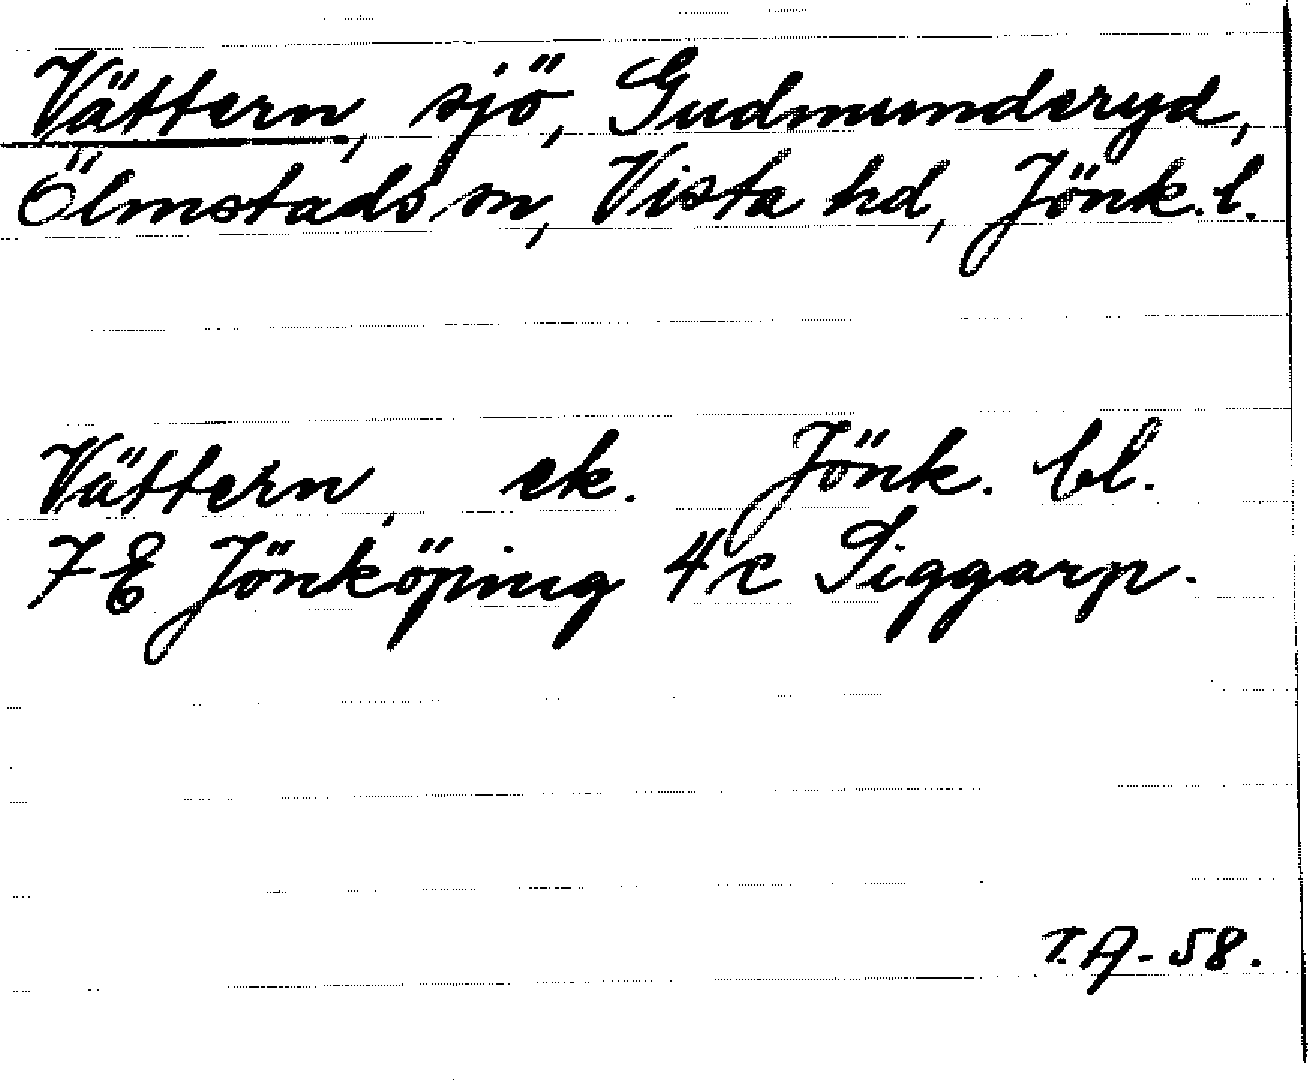 Vättern, sjö, Gudmunderyd,
Ölmstads sn, Vista hd, Jönk. l.
Vättern, ek. Jönk. bl.
7E Jönköping 4c Siggarp.
T.A-58.